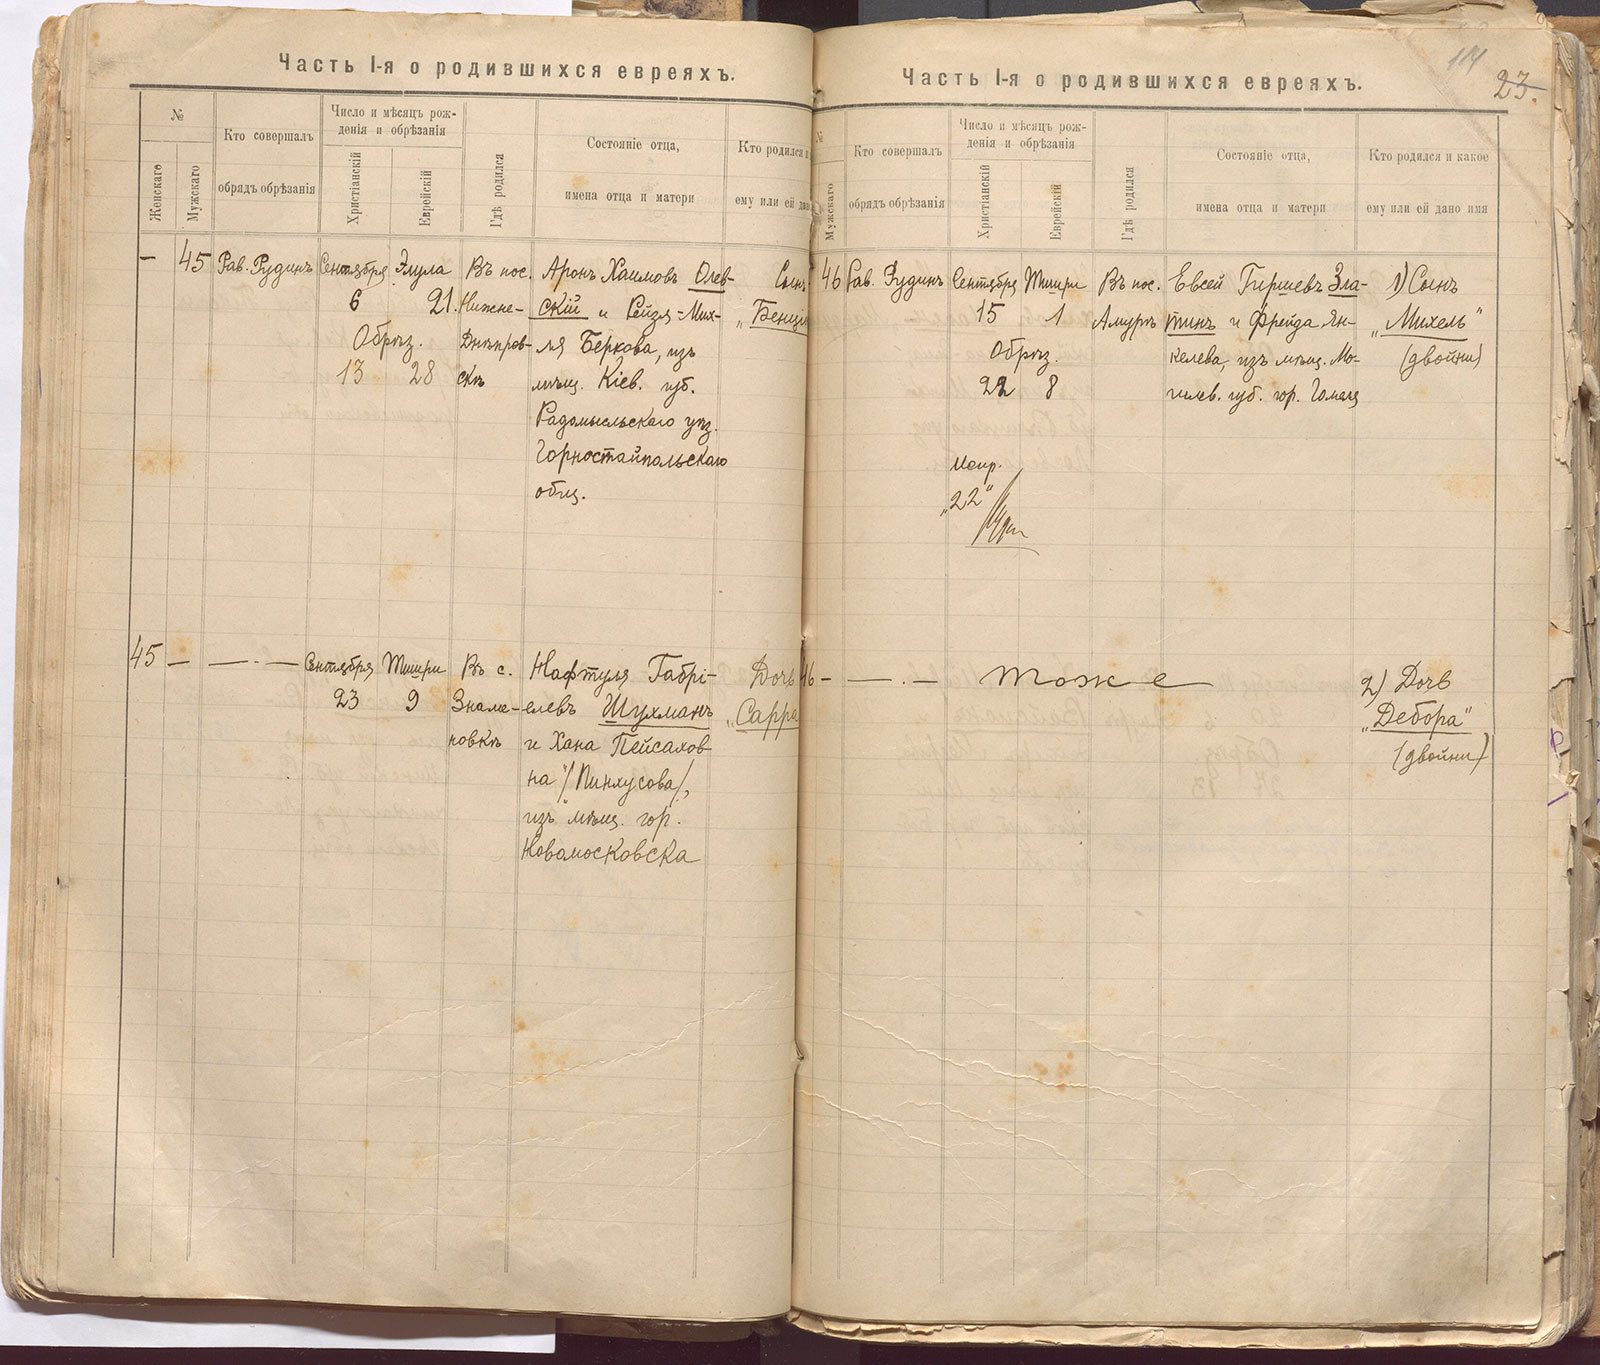 Часть I-я о родившихся евреяхъ.
№
Женскаго
Мужскаго
Кто совершалъ
обрядъ обрѣзанія
Число и мѣсяцъ рож-
денія и обрѣзанія
Христіанскій
Еврейскій
Гдѣ родился
Состояніе отца,
имена отца и матери
Кто родился и
ему или ей дано
— 45
Рав. Рудинъ
Сентября
6
Обрѣз.
13
Элула
21.
28
Въ пос.
Нижне-
Днѣпров-
скѣ
Аронъ Хаимовъ Олев-
скій и Рейзя-Мих-
ля Беркова, изъ
мѣщ. Кіев. губ.
Радомысльскаго уѣз.
Горностайпольскаго
общ.
Сынъ
45 — — . —
Сентября
23
Тишри
9
Въ с.
Знаме-
новкѣ
Нафтуля Габрі-
елевъ Шухманъ
и Хана Пейсахов-
на /Пинхусова/,
изъ мѣщ. гор.
Новомосковска
Дочь
„Сарра
Часть I-я о родившихся евреяхъ.
114
23.
№
Мужскаго
Кто совершалъ
обрядъ обрѣзанія
Число и мѣсяцъ рож-
денія и обрѣзанія
Христіанскій
Еврейскій
Гдѣ родился
Состояніе отца,
имена отца и матери
Кто родился и какое
ему или ей дано имя
46
Рав. Рудинъ
Сентября
15
Обрѣз.
22
Тишри
1
8
Испр.
„22“
Въ пос.
Амурѣ
Евсей Гиршевъ Зла-
тинъ и Фрейда Ян-
келева, изъ мѣщ. Мо-
гилев. губ. гор. Гомеля
1) Сынъ
„Михель“
(двойни)
46 — — . —
Тоже
2) Дочь
„Дебора“
(двойни)